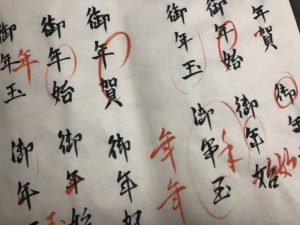 年賀
御年始
御年玉
御年賀
御年始
御年玉
年
御年始
御年始
始
御年玉
年
年
年
御年賀
御年始
御年